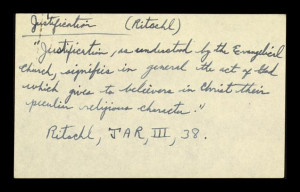 Justification (Ritschl)
"Justification, as conducted by the Evangelical
Church, signifies in general the act of God
which gives to believers in Christ their
peculiar religious character."
Ritschl, JAR, III, 38.